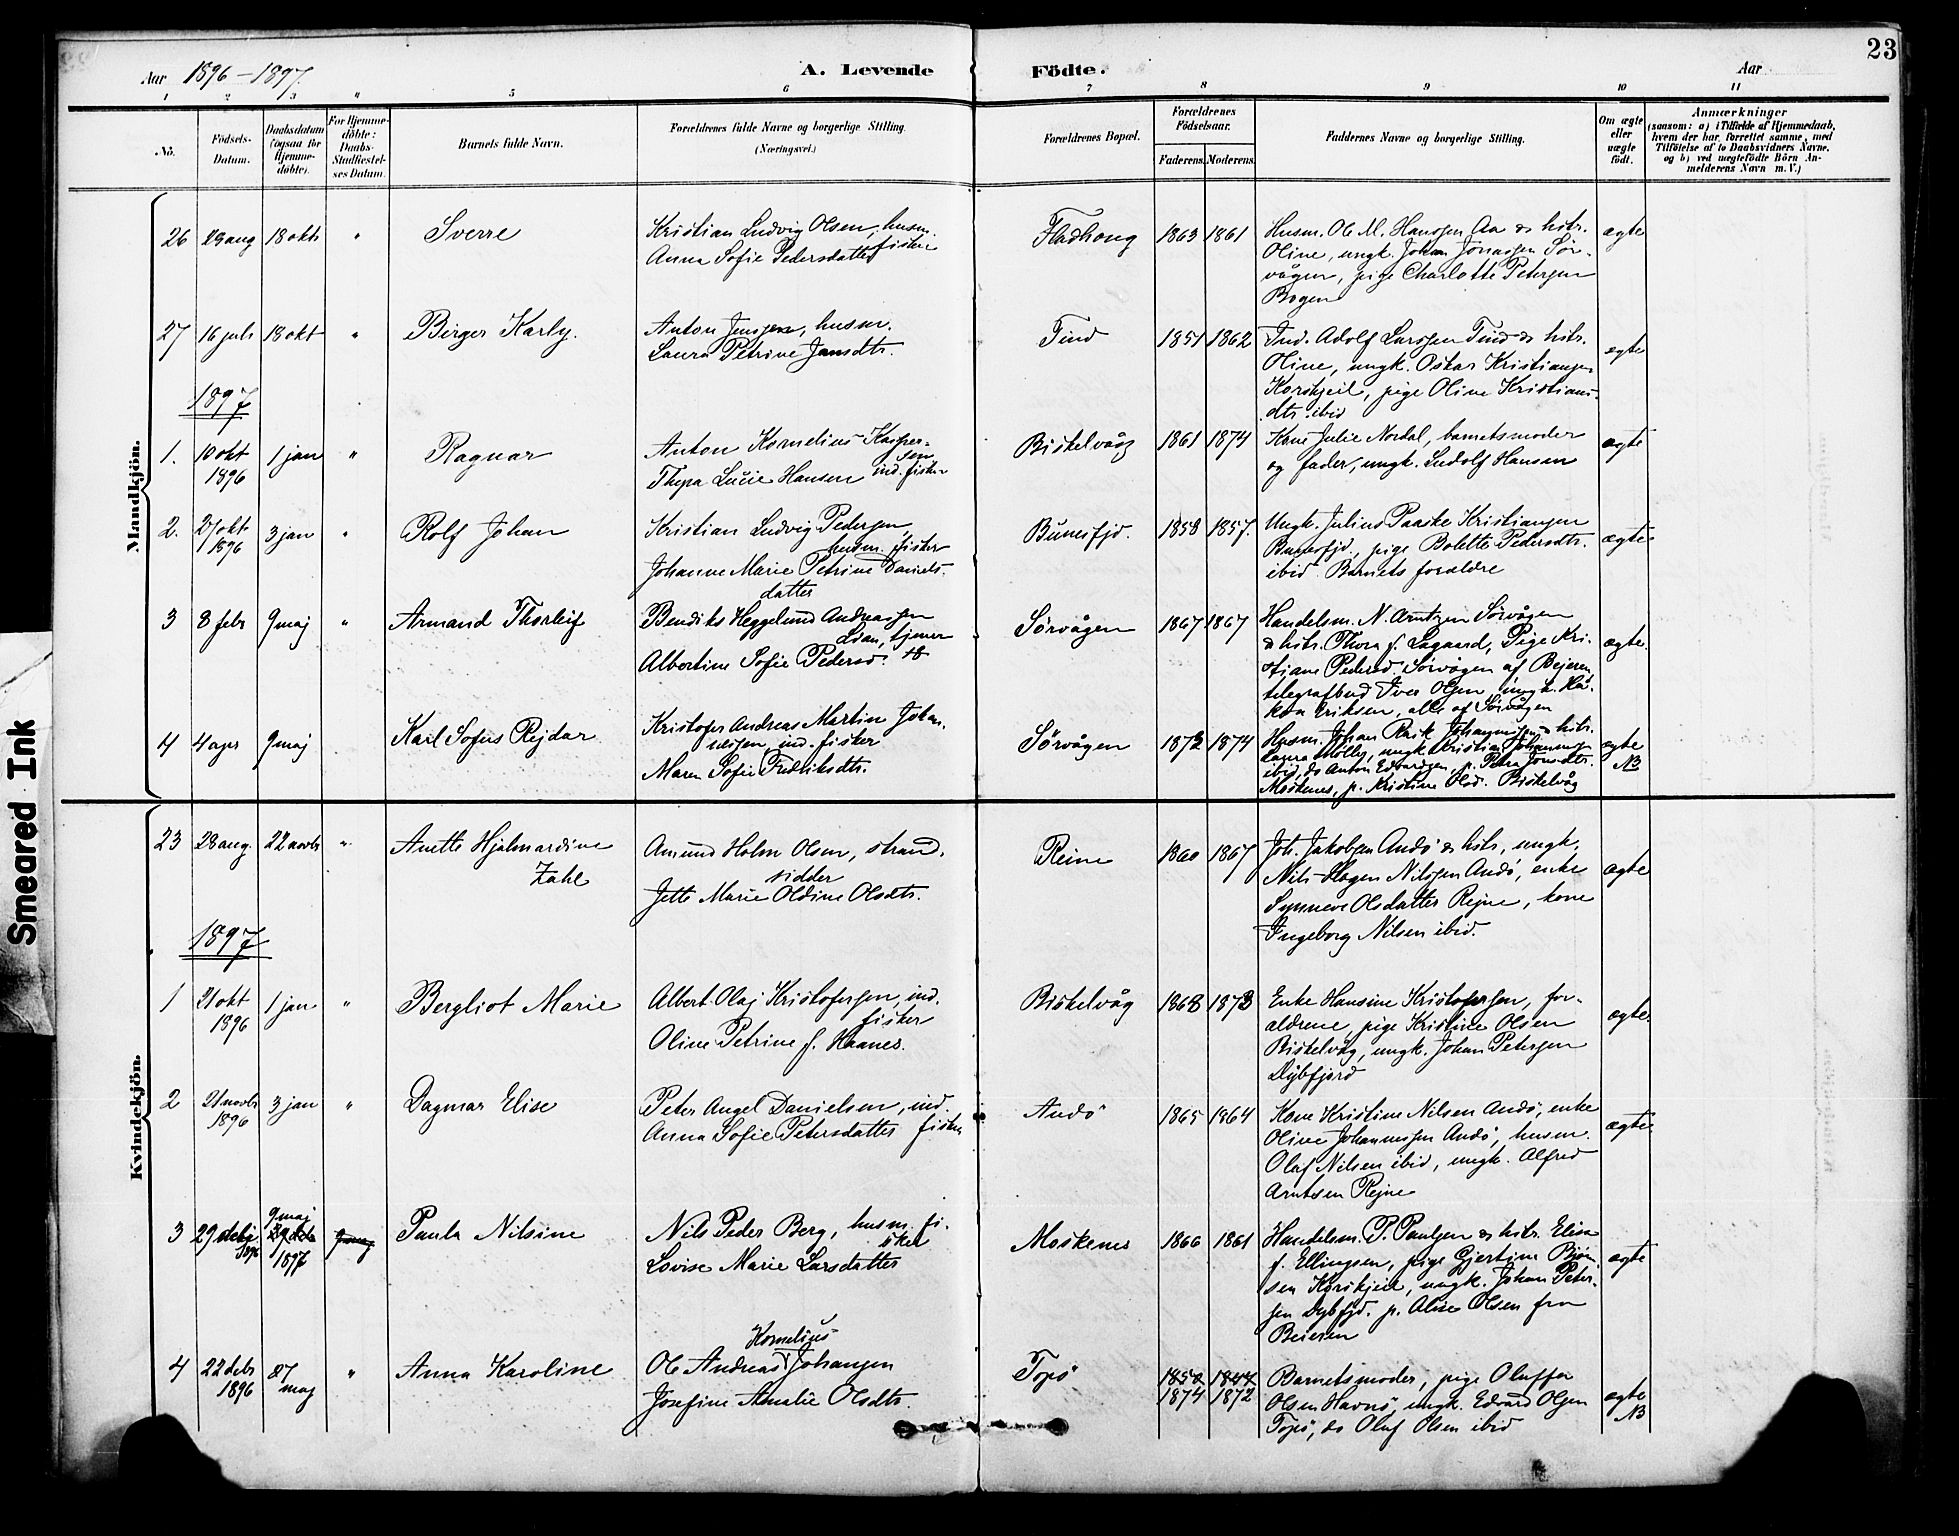 23
Aar 1896-1897.
A. Levende
Födte.
Aar
1 2 3 " 5 6 7 8 9 10 11
No.
Födsels-
Datum.
Daabsdatum
(ogsaa for
Hjemme-
döbte).
For Hjemme-
döbte:
Daabs-
Stadfæstel-
ses Datum.
Barnets fulde Navn.
Forældrenes fulde Navne og borgerlige Stilling.
(Næringsvei.)
Forældrenes Bopæl.
Forældrenes
Födselsaar.
Faderens.
Moderens.
Faddernes Navne og borgerlige Stilling.
Om ægte
eller
uægte
født.
Anmærkninger
(saasom: a) i Tilfælde af Hjemmedaab,
hvem der har forrettet samme, med
Tilföielse af to Daabsvidners Navne,
og b) ved uægtefödte Börn An-
melderens Navn m. V.)
Mandkjön.
26 29 aug 18 okt " Sverre
Kristian Ludvig Olsen, husm.
fisker
Anna Sofie Pedersdatter
Fladhaug 1863 1861
Husm. Ole M. Hanssen Aa & hstr.
Oline, ungk. Johan Jonassen Sør-
vågen, pige Charlotte Petersen
Bogen
ægte
27 16 juli 18 okt " Birger Karly.
Anton Jenssen, husm.
Laura Petrine Jansdtr.
Tind 1851 1862
Ind. Adolf Larssen Tind & hstr.
Oline, ungk. Oskar Kristiansen
Korshjeil, pige Oline Kristians-
dtr. ibid
ægte
1897
1. 10 okt
1896
1 jan " Ragnar
Anton Kornelius Kasper-
sen
ind. fisker
Thyra Lucie Hansen
Biskelvåg 1861 1874
Kone Julie Nordal, barnets moder
og fader, ungk. Ludolf Hansen
ægte
2. 27 okt
1896
3 jan " Rolf Johan
Kristian Ludvig Pedersen,
husm. fisker
Johanne Marie Petrine Daniels-
datter
Bunesfjd. 1858 1857.
Ungk. Julius Paaske Kristiansen
Bunesfjd., pige Bolette Pedersdtr.
ibid. Barnets forældre
ægte
3 8 febr 9 maj " Armand Thorleif
Bendiks Heggelund Andreassen
Albertine Sofie Pedersd.
Sørvågen 1867 1867
Handelsm. N. Arntzen Sørvågen
& hstr. Thora f. Lagaard, Pige Kri-
stiane Pedersd. Sørvågen af Bejeren,
telegrafbud Iver Olsen, ungk. Hå-
kon Eriksen, alle af Sørvågen
ægte.
4 4 apr 9 maj Karl Sofus Rejdar
Kristofer Andreas Martin Johan-
nessen, ind. fisker
Maren Sofie Fredriksdtr.
Sørvågen 1872 1874
Husm. Johan Rask Johannessen & hstr.
Laura Møller, ungk. Kristian Johannesen
ibid, do Anton Edvardsen, p. Petra Jonsdtr.
Moskenes, p. Kristine Olsd. Biskelvåg
ægte
NB
Kvindekjön.
23 28 aug. 22 novbr " Anette Hjalmardine
Zahl
Amund Holm Olsen, strand-
sidder
Jette Marie Oldine Olsdtr.
Reine 1860 1867
Joh. Jakobsen Andø & hstr., ungk.
Nils Hagen Nilssen Andø, enke
Synneve Olsdatter Rejne, kone
Ingeborg Nilsen ibid.
ægte
1897
1 21 okt
1896
1 jan " Bergliot Marie
Albert Olaj Kristofersen, ind.
fisker
Oline Petrine f. Haanes.
Biskelvåg 1868 1873
Enke Hansine Kristofersen, for-
ældrene, pige Kristine Olsen
Biskelvåg, ungk. Johan Petersen
Dybfjord
ægte.
2 21 novbr
1896
3 jan " Dagmar Elise
Peter Angel Danielsen, ind.
fisker
Anna Sofie Petersdatter
Andø 1865 1864
Kone Kristine Nilsen Andø, enke
Oline Johannessen Andø, husm.
Olaf Nilsen ibid, ungk. Alfred
Arntsen Rejne
ægte.
3 29 decbr
1896
9 maj
1897
Paula Nilsine
Nils Peder Berg, husm. fi-
sker
Lovise Marie Larsdatter
Moskenes 1866 1861
Handelsm. P. Paulsen & hstr. Elise
f. Ellingsen, pige Gjertine Bjørn
sen Korshjeil, ungk. Johan Peter-
sen Dybfjd. p. Alise Olsen fra
Beieren
ægte
4 22 decbr
1896
27
maj
" Anna Karoline
Kornelius
Ole Andreas Johansen
Josefine Amalie Olsdtr.
Topø 1850 1844
1874 1872
Barnets moder, pige Oluffa
Olsen Havnø, ungk. Edvard Olsen
Topø, do Oluf Olsen ibid
ægte
NB
Smeared Ink